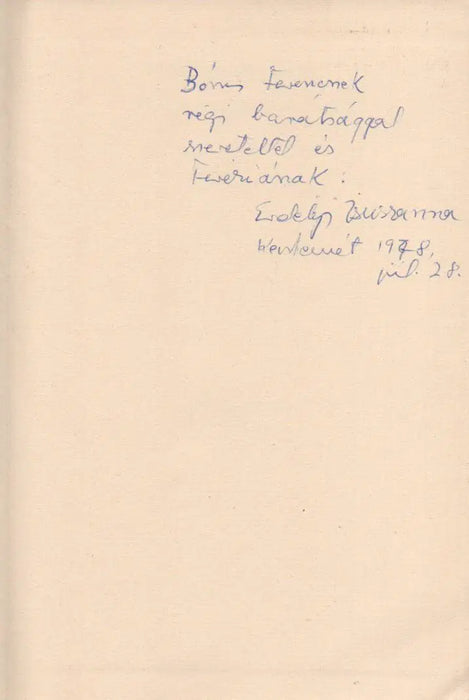 Bónis Ferencnek
régi barátsággal
szeretettel és
Teréziának:
Erdélyi Zsuzsanna
Kecskemét 1978.
júl. 28.